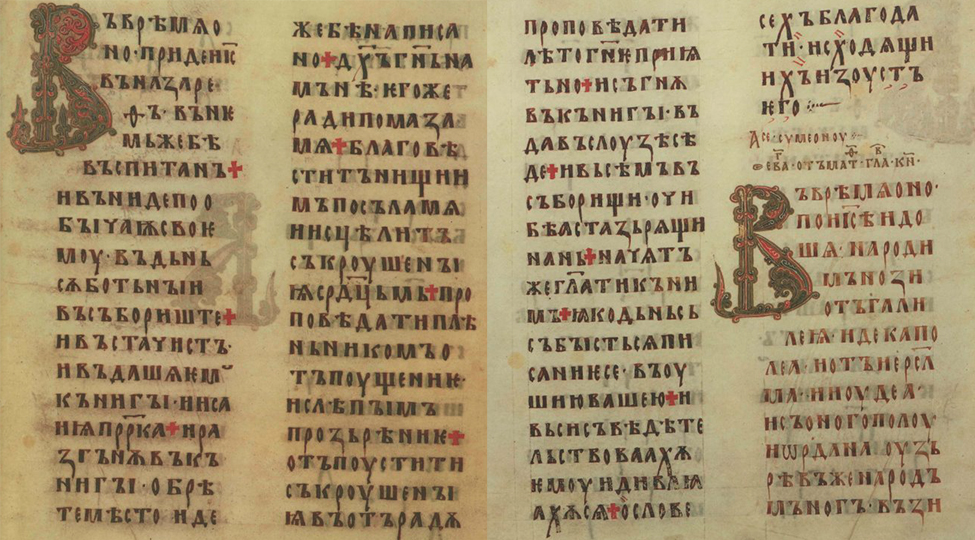 ВЪВРѢМѦО
НО·ПРИДЕИС҃
ВЪНАЗАРЕ·
ѲЪ·ВЪНЮ
МЬЖЕБѢ
ВЪСПИТАНЪ✝
ИВЪНИДЕПОО
БЪІЧАЮСВОѤ
МОУ·ВЪДЬНЬ
СѪБОТЬНЪІИ
ВЪСЪБОРИШТЕ✝
ИВЪСТАЧИСТЪ·
ИВЪДАШѦѤМ
КЪНИГЪІ·ИИСА
ИІѦПРР҃КА✝ИРА
ЗГЪНѪВЪКЪ
НИГЪІ·ОБРѢ
ТЕМѢСТО ИДЕ
ЖЕБѢНАПИСА
НО✝ДХ҃ЪГН҃ЬНА
МЪНѢ·ѤГОЖЕ
РАДИПОМАЗА
МѦ✝БЛАГОВѢ
СТИТЪНИЩИИ
МЪПОСЪЛАМѦ
ИИСЦѢЛИТЪ
СЪКРОУШЕНЪІ
ІѦСРД҃ЦЬМЬ✝ПРО
ПОВѢДАТИПЛѢ
НЬНИКОМЪО
ТЪПОУЩЕНИѤ·
ИСЛѢПЪІМЪ
ПРОЗЬРѢНИѤ✝
ОТЪПОУСТИТИ
СЪКРОУШЕНЪІ
ІѦВЪОТЪРАДѪ
ПРОПОВѢДАТИ
ЛѢТОГН҃ѤПРИІѦ
ТЬНО✝ИСЪГНѪ
ВЪКЪНИГЪІ·ВЪ
ДАВЪСЛОУЗѢСѢ
ДЕ✝ИВЬСѢМЪВЪ
СЪБОРИЩИ·ОЧИ
БѢАСТАЗЬРѦЩИ
НАНЬ✝НАЧѦТЪ
ЖЕГЛ҃АТИКЪНИ
МЪ✝ІѦКОДЬНЬСЬ
СЪБЪІСТЬСѦПИ
САНИѤСЕ·ВЪОУ
ШИЮВАШЕЮ✝И
ВЬСИСЪВѢДѢТЕ
ЛЬСТВОВААХѪ
ѤМОУИДИВЛІѦ
АХѪСѦ✝ОСЛОВЕ
СЕХЪБЛАГОДА
ТИ·ИСХОДѦЩИ
ИХЪИЗОУСТЪ
ѤГО
АСЕ·СУМЕОНОУ
ФЕВА·ОТЪМАТ·ГЛА·КН·
ВЪВРѢМѦОНО·
ПОИС҃ѢИДО
ШѦ·НАРОДИ
МЪНОЗИ
ОТЪГАЛИ
ЛЕІѦ·ИДЕКАПО
ЛЕѦ·ИОТЪИЕРСЛ҃
МА·ИИОУДЕѦ·
ИСЪОНОГОПОЛОУ·
ИѠРДАНА·ОУЗЬ
РѢВЪЖЕНАРОДЪ
МЪНОГЪ·ВЪЗИ